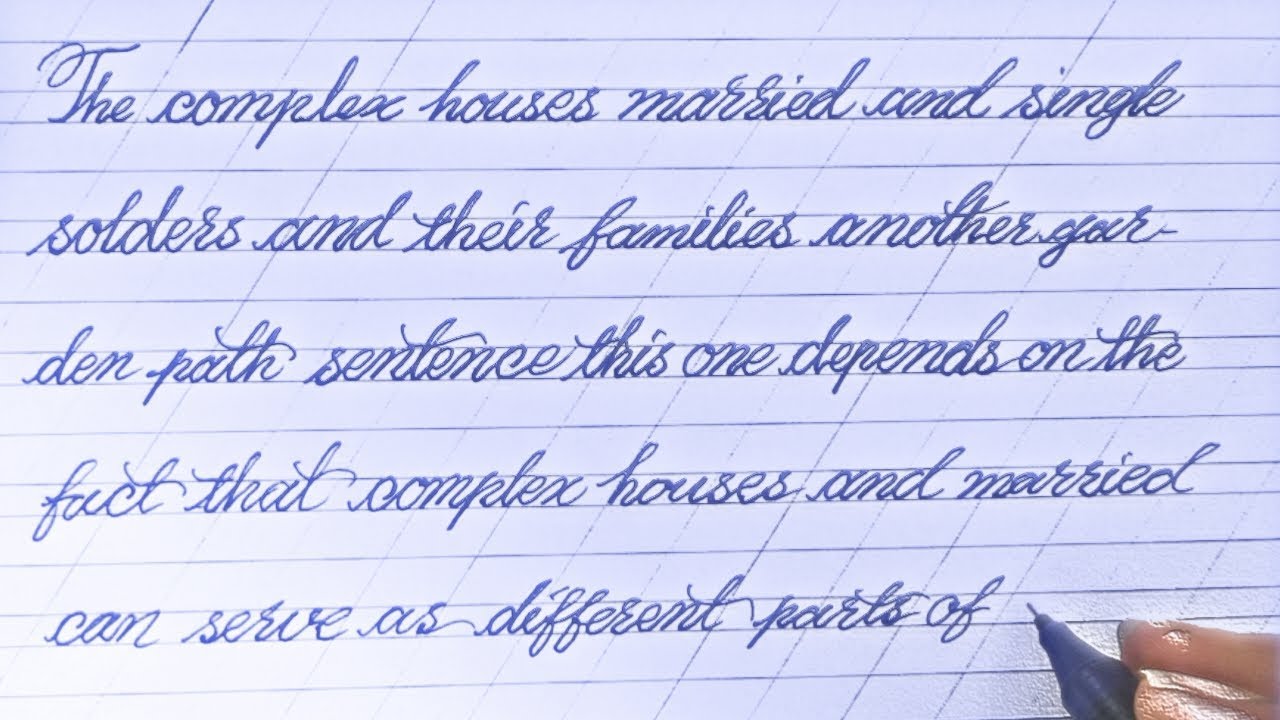 The complex houses married and single
solders and their families another gar-
den path sentence this one depends on the
fact that complex houses and married
can serve as different parts of